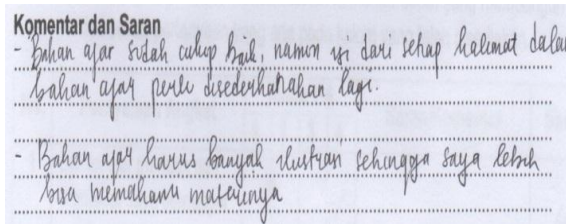 Komentar dan Saran
- Bahan ajar sudah cukup baik, namun isi dari setiap kalimat dala
bahan ajar perlu disederhanakan lagi.
- Bahan ajar harus banyak ilustrasi sehingga saya lebih
bisa memahami materinya